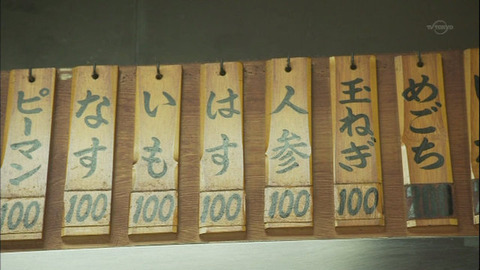 ピーマン
100
なす
100
いも
100
はす
100
人参
100
玉ねぎ
100
めごち